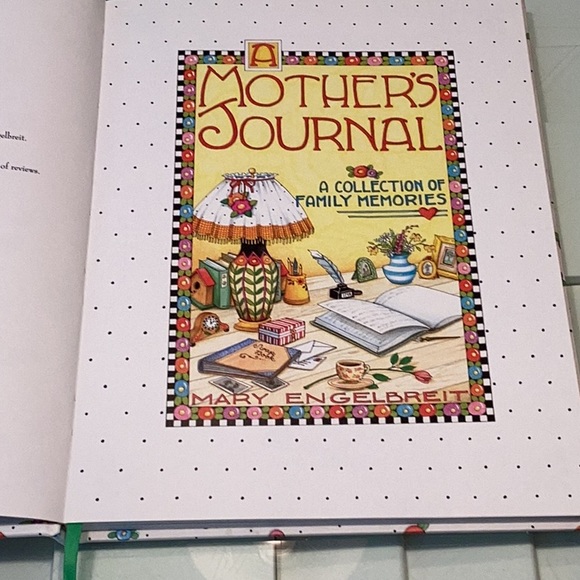 elbreit.
of reviews.
A
MOTHER'S
JOURNAL
A COLLECTION OF
FAMILY MEMORIES
MARY ENGELBREIT